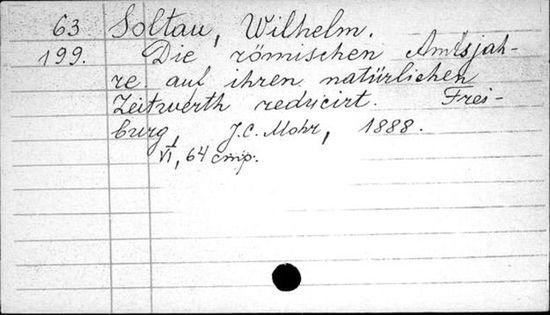 63 Soltau, Wilhelm.
199. Die römischen Amtsjah-
re auf ihren natürlichen
Zeitwerth reducirt. Frei-
burg, J.C. Mohr, 1888.
VI, 64 стр.